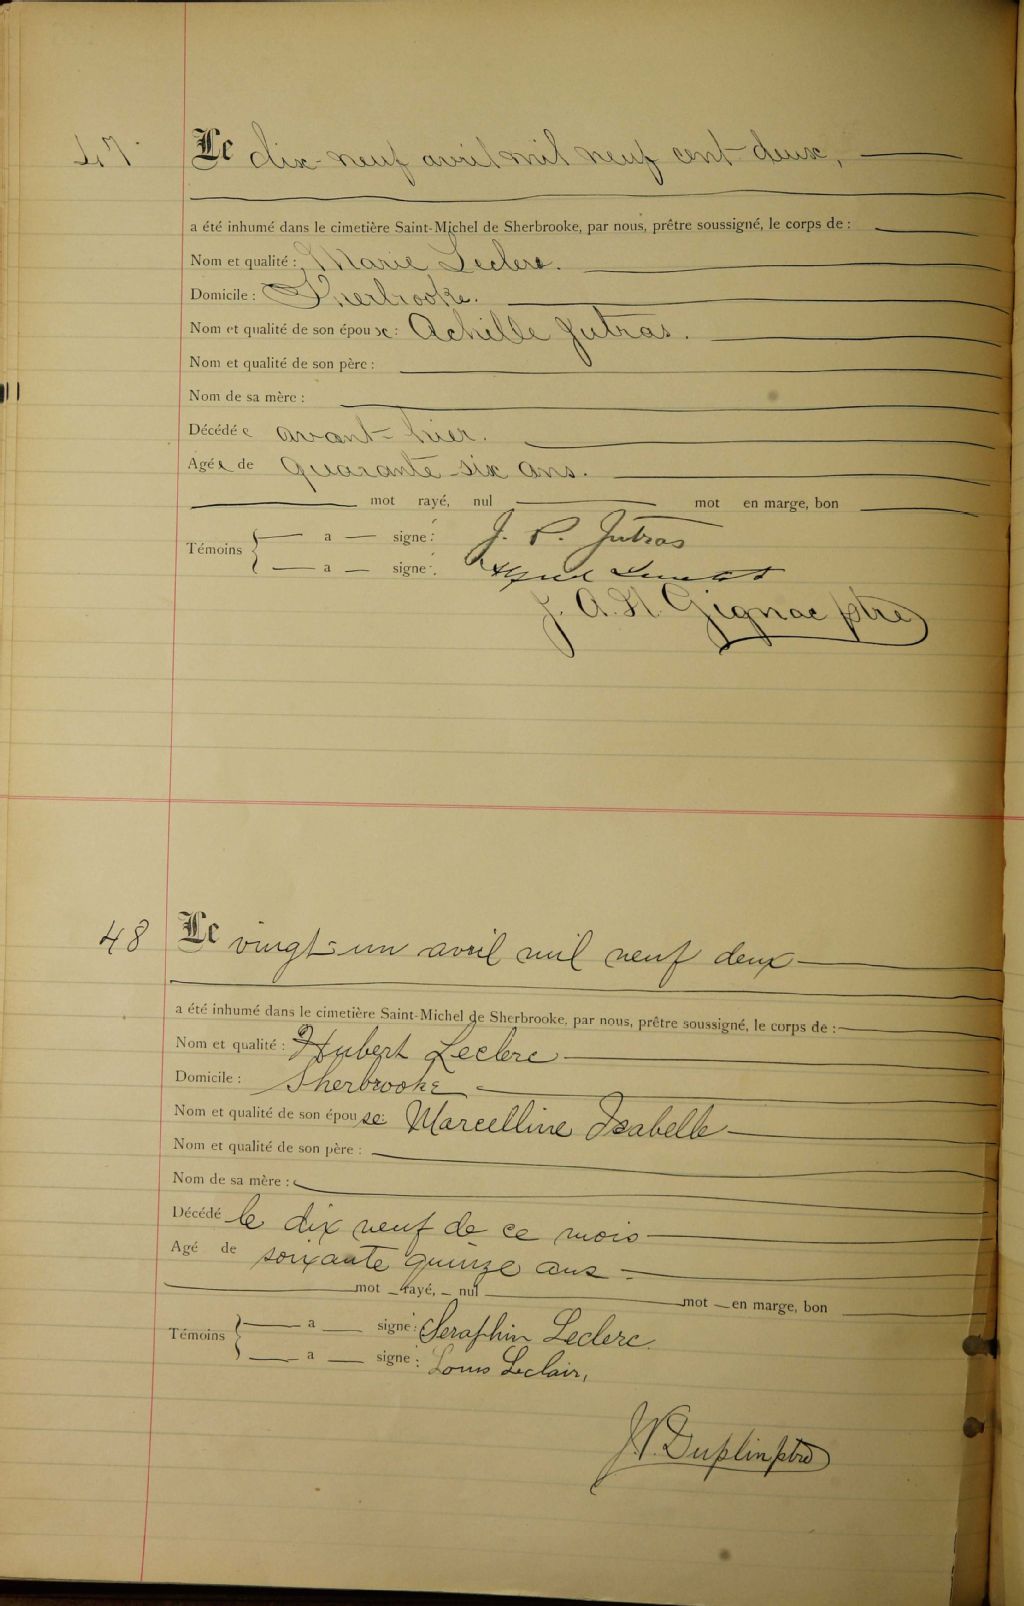 47
Le dix-neuf avril mil neuf cent deux,
a été inhumé dans le cimetière Saint-Michel de Sherbrooke, par nous, prêtre soussigné, le corps de :
Nom et qualité : Marie Leclerc.
Domicile : Sherbrooke.
Nom et qualité de son épouse : Achille Jutras.
Nom et qualité de son père :
Nom de sa mère :
Décédée avant-hier.
Agée de quarante-six ans.
mot rayé, nul mot en marge, bon
Témoins
a signé : J. P. Jutras
a signé : Alfred
J. A. H. Gignac ptre
48
Le vingt-un avril mil neuf deux
a été inhumé dans le cimetière Saint-Michel de Sherbrooke, par nous, prêtre soussigné, le corps de :
Nom et qualité : Hubert Leclerc
Domicile : Sherbrooke
Nom et qualité de son épouse : Marcelline Isabelle
Nom et qualité de son père :
Nom de sa mère :
Décédé le dix neuf de ce mois
Agé de soixante quinze ans
mot rayé, nul mot en marge, bon
Témoins
a signé : Seraphin Leclerc.
a signé : Louis Leclair,
J. V. Duplin ptre